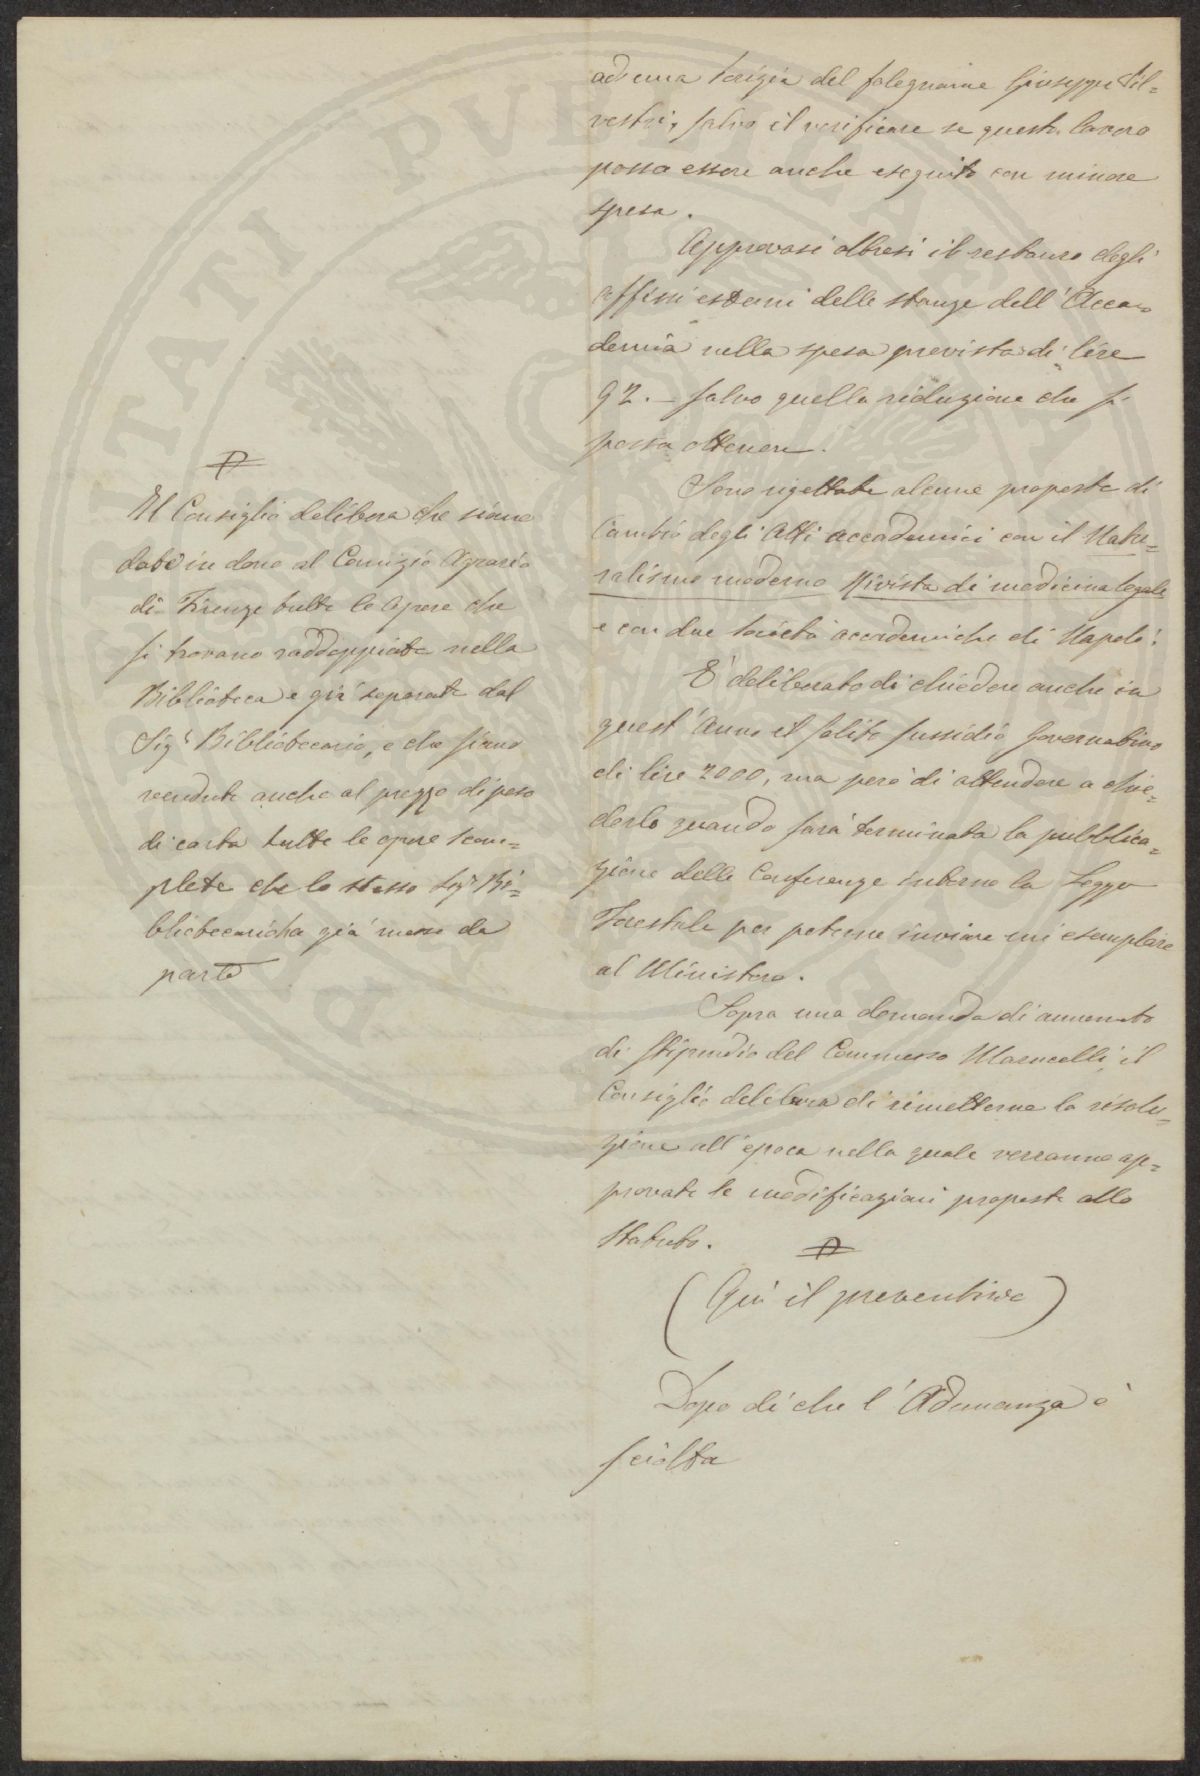 ad una perizia del falegname Giuseppe Sil=
vestri, salvo il verificare se questo lavoro
possa essere anche eseguito con minore
spesa.
Approvasi altresì il restauro degli
affissi esterni delle stanze dell'Acca=
demia nella spesa prevista di lire
92. – salvo quella riduzione che si
possa ottenere.
Sono rigettate alcune proposte di
Cambio degli Atti accademici con il Natu=
ralismo moderno Rivista di medicina legale
e con due Società accademiche di Napoli.
È deliberato di chiedere anche in
quest'Anno il solito sussidio Governativo
di lire 2000, ma però di attendere a chie=
derlo quando sarà terminata la pubblica=
zione delle Conferenze intorno la Legge
Forestale per poterne inviare un esemplare
al Ministero.
Sopra una domanda di aumento
di stipendio del Commesso Marucelli, il
Consiglio delibera di rimetterne la risolu=
zione all'epoca nella quale verranno ap=
provate le modificazioni proposte allo
Statuto.
(Qui il preventivo)
Dopo di che l'Adunanza è
sciolta
Il Consiglio delibera che siano
date in dono al Comizio Agrario
di Firenze tutte le Opere che
si trovano raddoppiate nella
Biblioteca e già separate dal
Sigr Bibliotecario, e che siano
vendute anche al prezzo di peso
di carta tutte le opere scom=
plete che lo stesso Sigr Bi=
bliotecario ha già messo da
parte